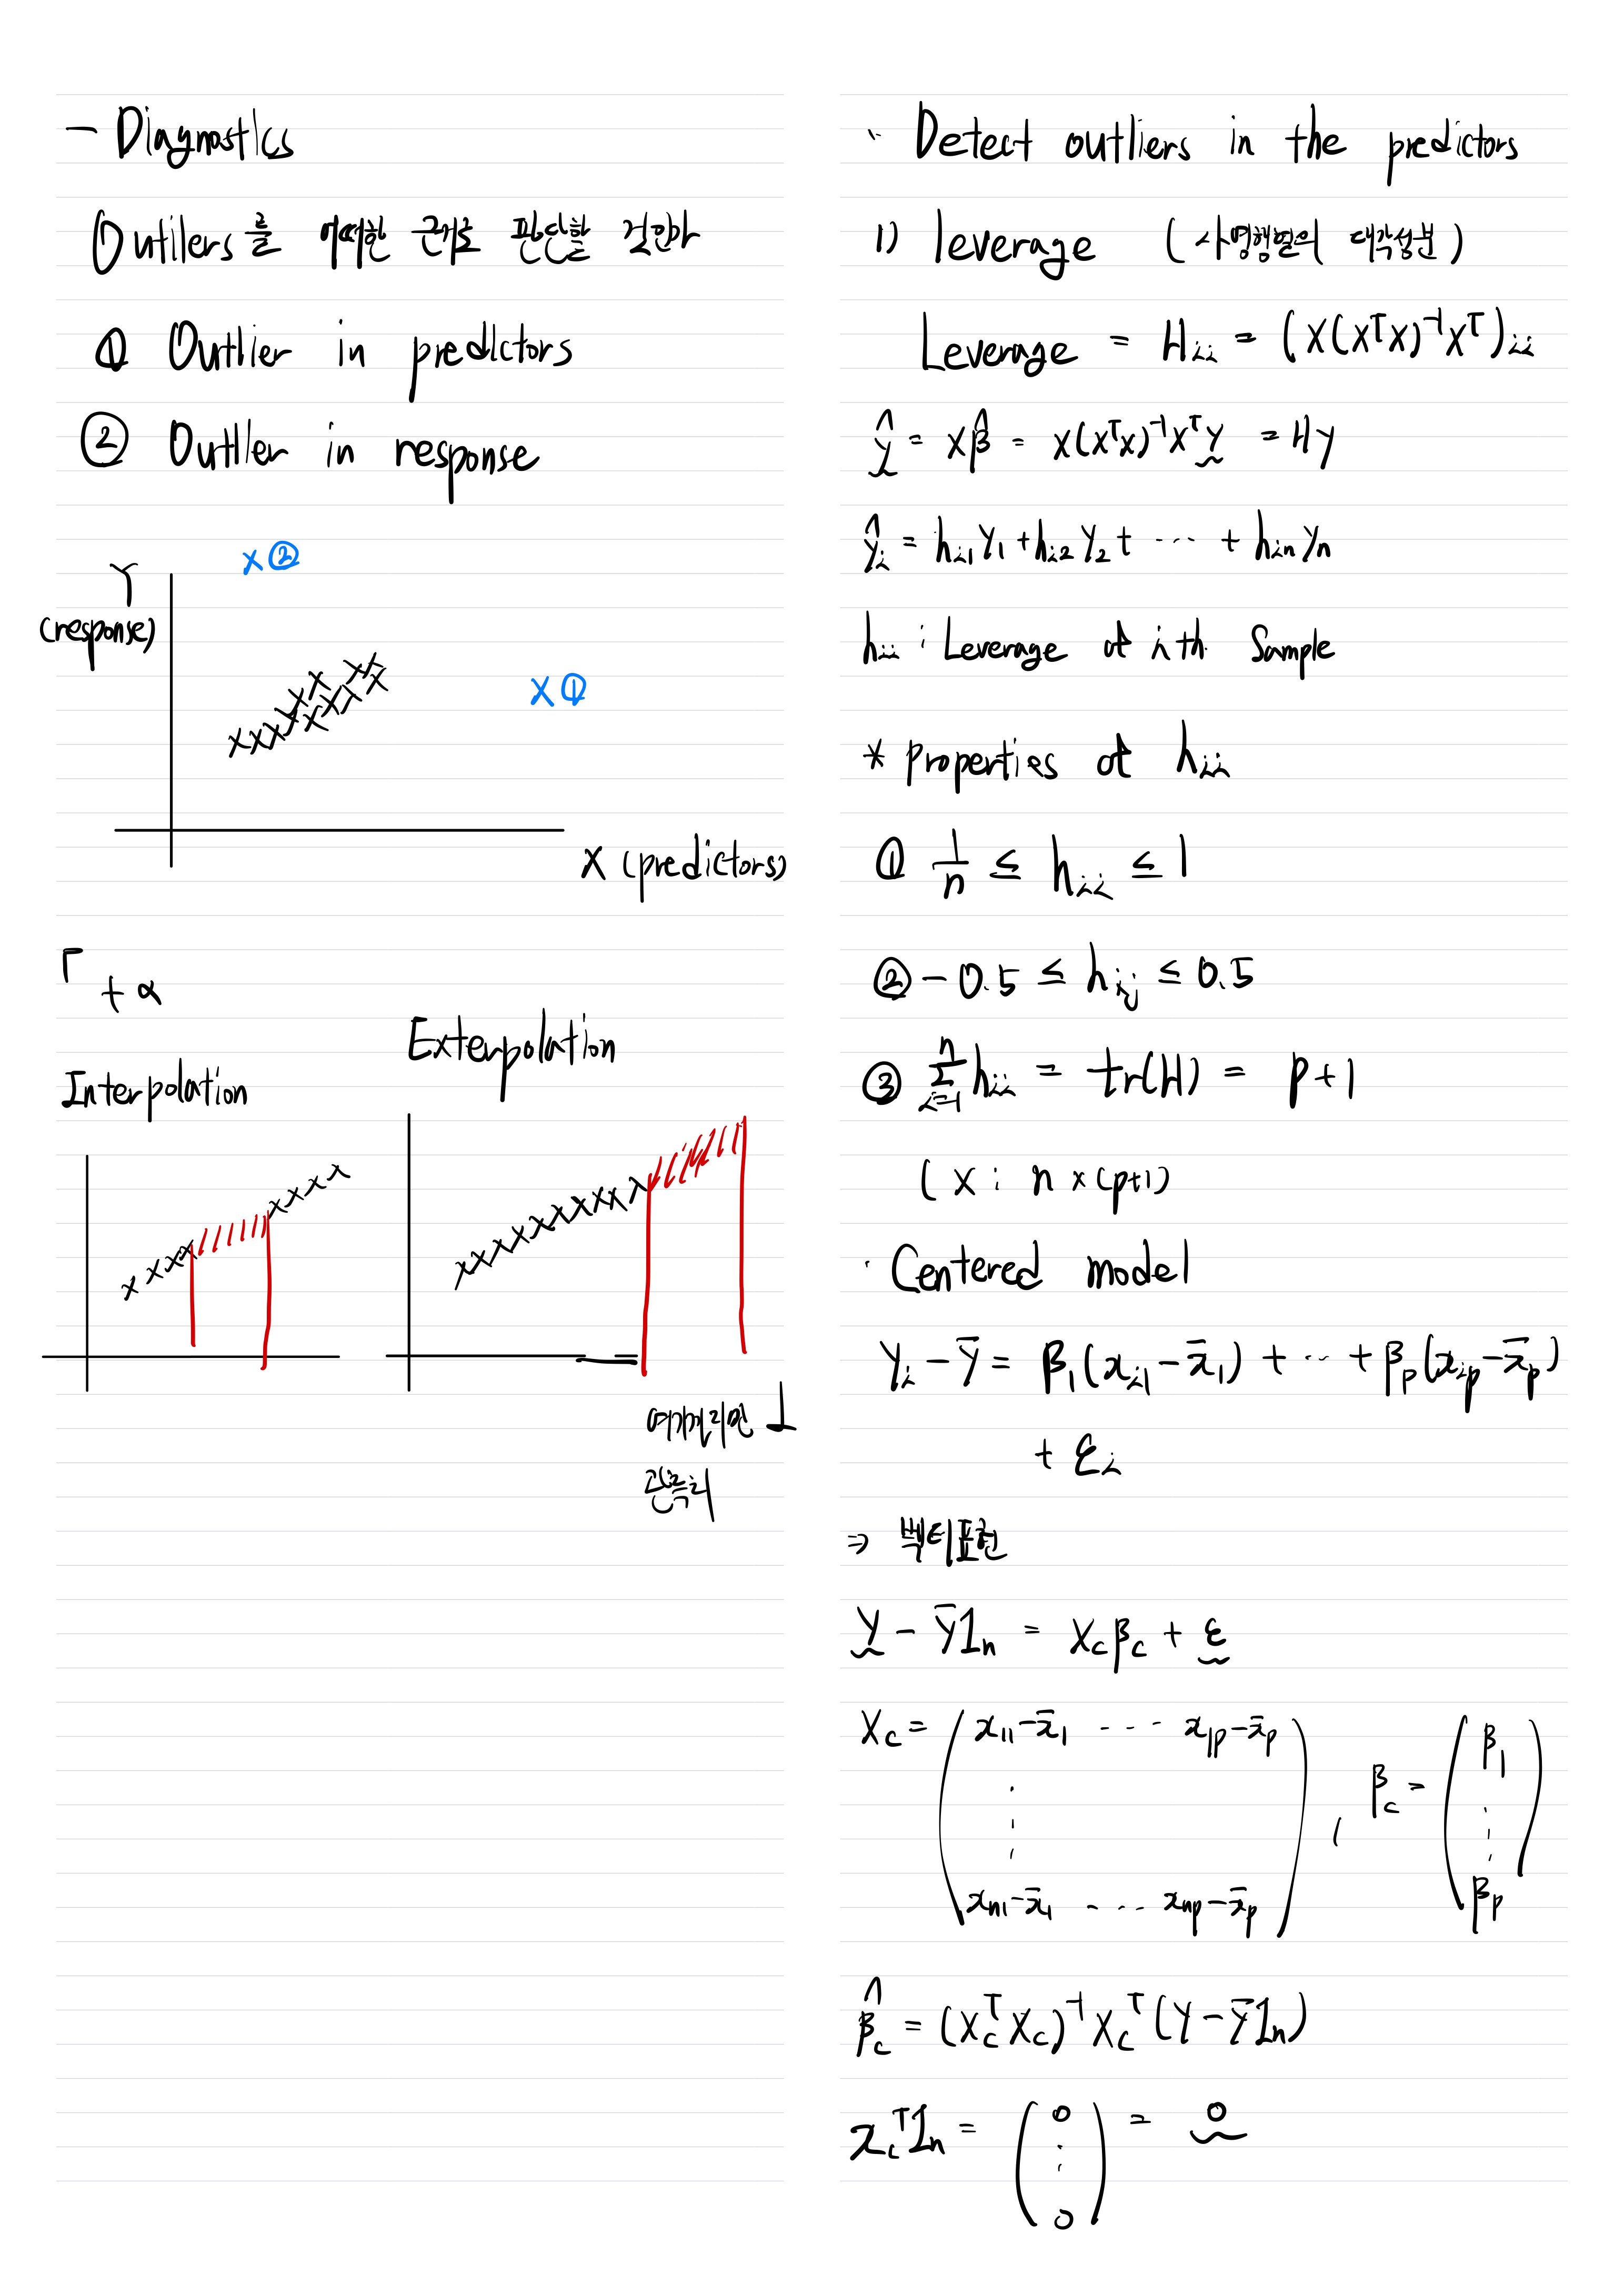 - Diagnostics
Outilers를 어떠한 근거로 판단할 것인가
① Outlier in predictors
② Outlier in response
x②
Y
(response)
x①
X (predictors)
「 + α
Interpolation
Exterpolation
여기까지만
관측치
· Detect outliers in the predictors
1) leverage (사영행렬의 대각성분)
Leverage = Hᵢᵢ = (X(XᵀX)⁻¹Xᵀ)ᵢᵢ
ŷ = Xβ̂ = X(XᵀX)⁻¹Xᵀy = Hy
ŷᵢ = hᵢ₁y₁ + hᵢ₂y₂ + ··· + hᵢₙyₙ
hᵢᵢ : Leverage of ith Sample
* properties of hᵢᵢ
① 1/n ≤ hᵢᵢ ≤ 1
② -0.5 ≤ hᵢⱼ ≤ 0.5
③ Σᵢ₌₁ⁿ hᵢᵢ = tr(H) = p+1
(X : n×(p+1)
· Centered model
Yᵢ - Ȳ = β₁(xᵢ₁ - x̄₁) + ··· + βₚ(xᵢₚ - x̄ₚ)
+ εᵢ
⇒ 벡터표현
Y - Ȳ1ₙ = X_c β_c + ε
X_c = ( x₁₁-x̄₁ ···· x₁ₚ-x̄ₚ ⋮ xₙ₁-x̄₁ ···· xₙₚ-x̄ₚ ) , β_c = ( β₁ ⋮ βₚ )
β̂_c = (X_cᵀX_c)⁻¹X_cᵀ(Y - Ȳ1ₙ)
x_cᵀ1ₙ = ( 0 ⋮ 0 ) = 0